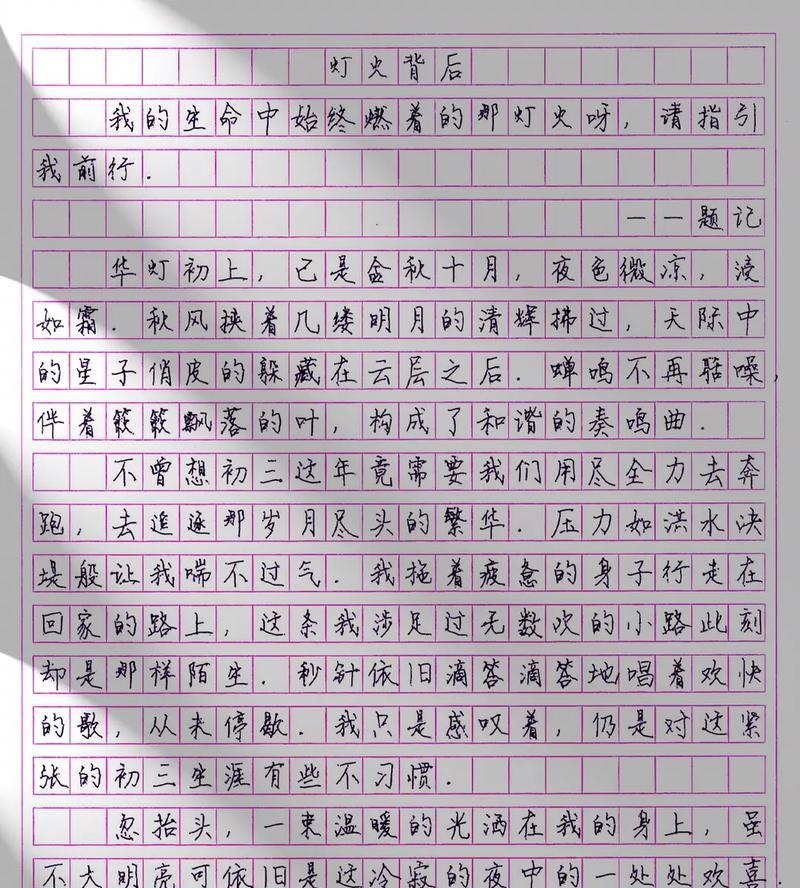 灯火背后
我的生命中始终燃着的那灯火呀，请指引
我前行.
——题记
华灯初上，已是金秋十月，夜色微凉，浸
如霜.秋风挟着几缕明月的清辉拂过，天际中
的星子俏皮的躲藏在云层之后.蝉鸣不再聒噪，
伴着簌簌飘落的叶，构成了和谐的奏鸣曲.
不曾想初三这年竟需要我们用尽全力去奔
跑，去追逐那岁月尽头的繁华.压力如洪水决
堤般让我喘不过气.我拖着疲惫的身子行走在
回家的路上，这条我涉足过无数次的小路此刻
却是那样陌生.秒针依旧滴答滴答地唱着欢快
的歌，从未停歇.我只是感叹着，仍是对这紧
张的初三生涯有些不习惯.
忽抬头，一束温暖的光洒在我的身上，虽
不大明亮可依旧是这冷寂的夜中的一处处欢喜.